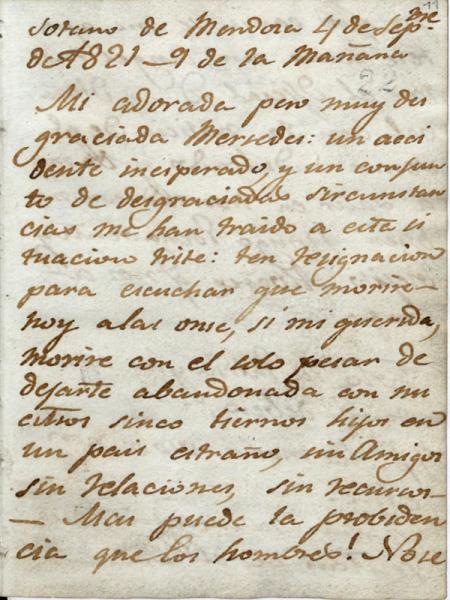 11
sotano de Mendosa 4 de Sepbre
de 1821 – 9 de la Mañana
22
Mi adorada pero muy des
graciada Mersedes: un acci
dente inesperado, y un conjun
to de desgraciadas sircunstan
cias me han traido a este si
tuacion triste: ten resignacion
para escuchar que morire
hoy a las onse, si mi querida,
morire con el solo pesar de
dejarte abandonada con nu
estros sinco tiernos hijos en
un pais estraño, sin Amigos
sin relaciones, sin recursos
— Mas puede la probiden
cia que los hombres! No se